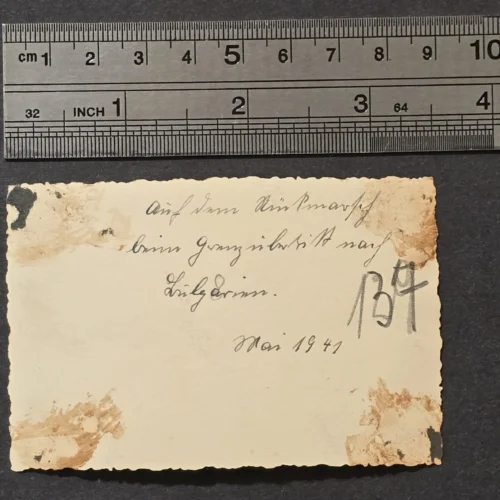 cm 1 2 3 4 5 6 7 8 9 10
32 INCH 1 2 3 64 4
Auf dem Rückmarsch
beim Grenzübertritt nach
Bulgarien.
Mai 1941